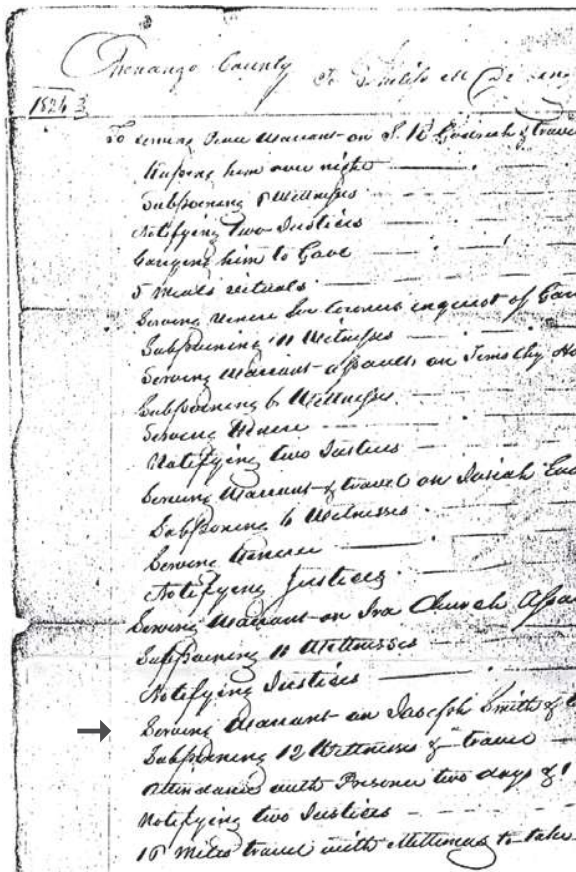 Chenango County To Philip M De
1826
To serving Peace Warrant on S. H. & travel
Keeping him over night
Subpoening Wittnesses
Notifying two Justices
Carrying him to Gaol
5 Meals victuals
Serving Venire for Coroners inquest of
Subpoening 11 Witnesses
Serving Warrant assault on Timothy
Subpoening 6 Wittnesses
Serving Venire
Notifying two Justices
Serving Warrant & travel on Josiah
Subpoening 6 Witnesses
Serving Venire
Notifying Justices
Serving Warrant on Ira Church
Subpoening 11 Wittnesses
Notifying Justices
Serving Warrant on Joseph Smith &
Subpoening 12 Wittnesses & travel
Attendance with Prisoner two days &
Notifying two Justices
10 Miles travel with Mittimus to take